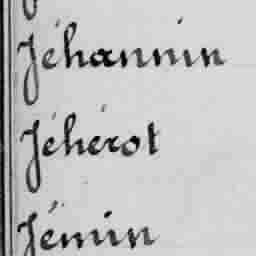 Jéhannin
Jéhérot
Jémin